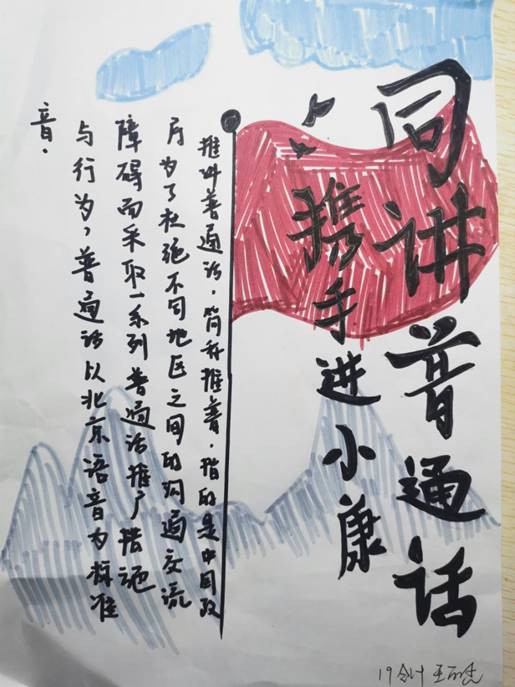 同讲普通话
携手进小康
推讲普通话，简称推普．指的是中国政
府为了杜绝不同地区之间的沟通交流
障碍而采取一系列普通话推广措施
与行为，普通话以北京语音为标准
音．
19会计 王